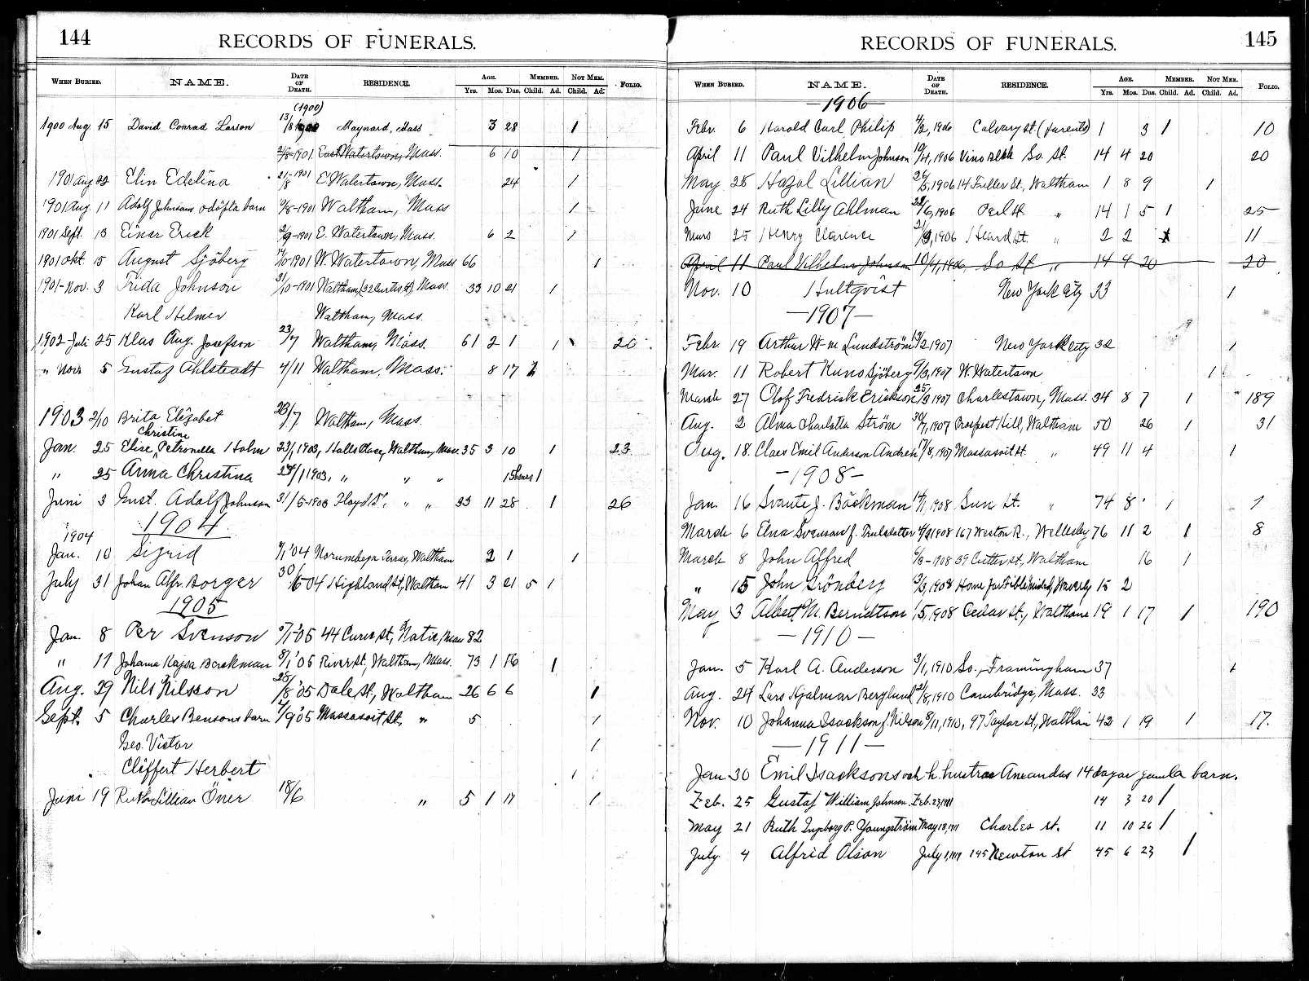 144
RECORDS OF FUNERALS.
WHEN BURIED. NAME. DATE OF DEATH. RESIDENCE. AGE. MEMBER. NOT MEM. FOLIO.
Yrs. Mos. Das. Child. Ad. Child. Ad.
(1900)
1900 Aug 15 David Conrad Larson 13/8 Maynard, Mass 3 28 1
1901 East Watertown, Mass. 6 10 1
1901 Aug 22 Elin Edelina 21/8-1901 E. Watertown, Mass. 24 1
1901 Aug 11 Adolf Johnsons odöpta barn /8-1901 Waltham, Mass 1
1901 Sept. 13 Einar Erick /9-1901 E. Watertown, Mass. 6 2 1
1901 Okt 5 August Sjöberg /10-1901 W. Watertown, Mass 66 1
1901-Nov. 3 Frida Johnson 31/10-1901 Waltham (32 Curtis St) Mass 33 10 21 1
Karl Helmer Waltham, Mass.
1902 Juli 25 Klas Aug. Josefson 23/7 Waltham, Mass. 61 2 1 1 20
" Nov. 5 Gustaf Ahlstradt 4/11 Waltham, Mass. 8 17
1903 2/10 Brita Elizabet Christine 23/7 Waltham, Mass.
Jan. 25 Elise Petronella Holm 23/1 1903, Halls Place, Waltham, Mass. 35 3 10 1 23
" 25 Anna Christina 24/1 1903, " " " 1
Juni 3 Gust. Adolf Johnson 31/5-1903 Floyd St, " " 33 11 28 1 26
1904
1904
Jan. 10 Sigrid /1 '04 Norumbega Terrace, Waltham 2 1 1
July 31 Johan Alfr. Borger 30/ 04 Highland St, Waltham 41 3 21 5 1
1905
Jan. 8 Per Svenson /1 '05 44 Curve St, Natic, Mass 82
" 11 Johanna Kajsa Backman 8/1 '05 River St, Waltham, Mass. 73 1 16 1
Aug. 29 Nils Nilsson 25/8 '05 Dale St, Waltham 26 6 6 1
Sept. 5 Charles Bensons barn /9 '05 Massasoit St, " 5 1
Geo. Victor 1
Cliffert Herbert 1
Juni 19 Ruth Lillian Öner 18/6 " 5 1 17 1
145
RECORDS OF FUNERALS.
WHEN BURIED. NAME. DATE OF DEATH. RESIDENCE. AGE. MEMBER. NOT MEM. FOLIO.
Yrs. Mos. Das. Child. Ad. Child. Ad.
—1906—
Febr. 6 Harold Carl Philip 4/2, 1906 Calvary St. (parents) 1 3 1 10
April 11 Paul Vilhelm Johnson 10/4, 1906 So. St. 14 4 20 20
May 28 Hazal Lillian 26/5, 1906 14 Fuller St, Waltham 1 8 9 1
June 24 Ruth Lilly Ahlman 22/6, 1906 Perl St. " 14 1 5 1 25
Mars 25 Henry Clarence 21/3, 1906 Heard St. " 2 2 11
April 11 Paul Vilhelm Johnson 10/4, 1906 So St " 14 4 20 20
Nov. 10 Hultqvist New York City 33 1
—1907—
Febr. 19 Arthur Wm Lundström 13/2 1907 New York City 32 1
Mar. 11 Robert Kuno Sjöberg 9/3, 1907 W. Watertown 1
March 27 Olof Fredrick Erickson 25/3 1907 Charlestown, Mass. 34 8 7 1 189
Aug. 2 Alma Charlotta Ström 30/7, 1907 Prospect Hill, Waltham 50 26 1 31
Aug. 18 Claes Emil Anderson 17/8, 1907 Massasoit St. " 49 11 4 1
—1908—
Jan. 16 Svante J. Bäckman 14/1, 1908 Sun St. " 74 8 1 7
March 6 Elna Svenson 4/3 1908 167 Weston R., Wellesley 76 11 2 1 8
March 8 John Alfred 6/3-1908 39 Cutter St, Waltham 16 1
" 15 John Grönberg 1908 Home for Feble minded, Waverly 15 2
May 3 Albert M. Berndtson 1/5, 1908 Cedar St., Waltham 19 1 17 1 190
—1910—
Jan. 5 Karl A. Anderson 3/1, 1910 So. Framingham 37 1
Aug. 24 Lars Hjalmar Berglund 21/8, 1910 Cambridge, Mass. 33
Nov. 10 Johanna Isackson f. Nilson 8/11, 1910, 97 Taylor St, Waltham 42 1 19 1 17.
—1911—
Jan 30 Emil Isacksons och h. hustras Amandas 14 dagar gamla barn.
Feb. 25 Gustaf William Johnson Feb. 23, 1911 14 3 20 1
May 21 Ruth Ingeborg P. Youngström May 18, 1911 Charles St. 11 10 26 1
July 4 Alfrid Olson July 1, 1911 145 Newton St 45 6 23 1